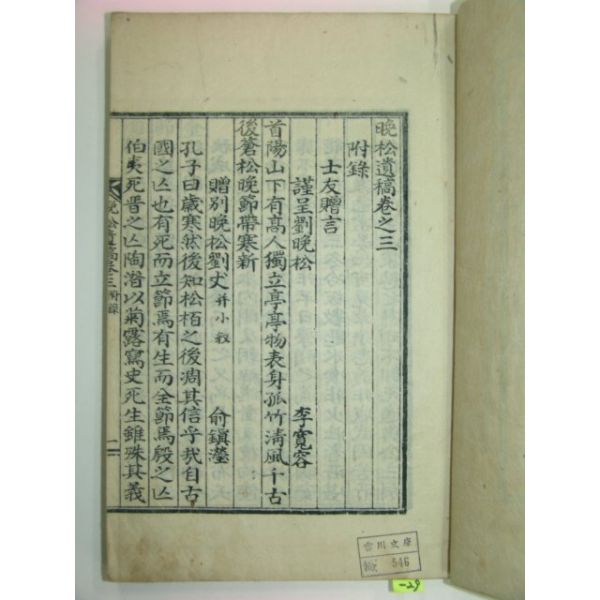 晩松遺稿卷之三
附錄
士友贈言
謹呈劉晩松 李寬容
首陽山下有高人獨立亭亭物表身孤竹清風千古
後蒼松晩節帶寒新
贈別晩松劉丈 并小敘 俞鎭瀅
孔子曰歲寒然後知松栢之後凋其信乎哉自古
國之亾也有死而立節焉有生而全節焉殷之亾
伯夷死晋之亾陶潛以菊露寫史死生雖殊其義
晩松遺稿卷三 附錄 一
雲川文庫
546
-29